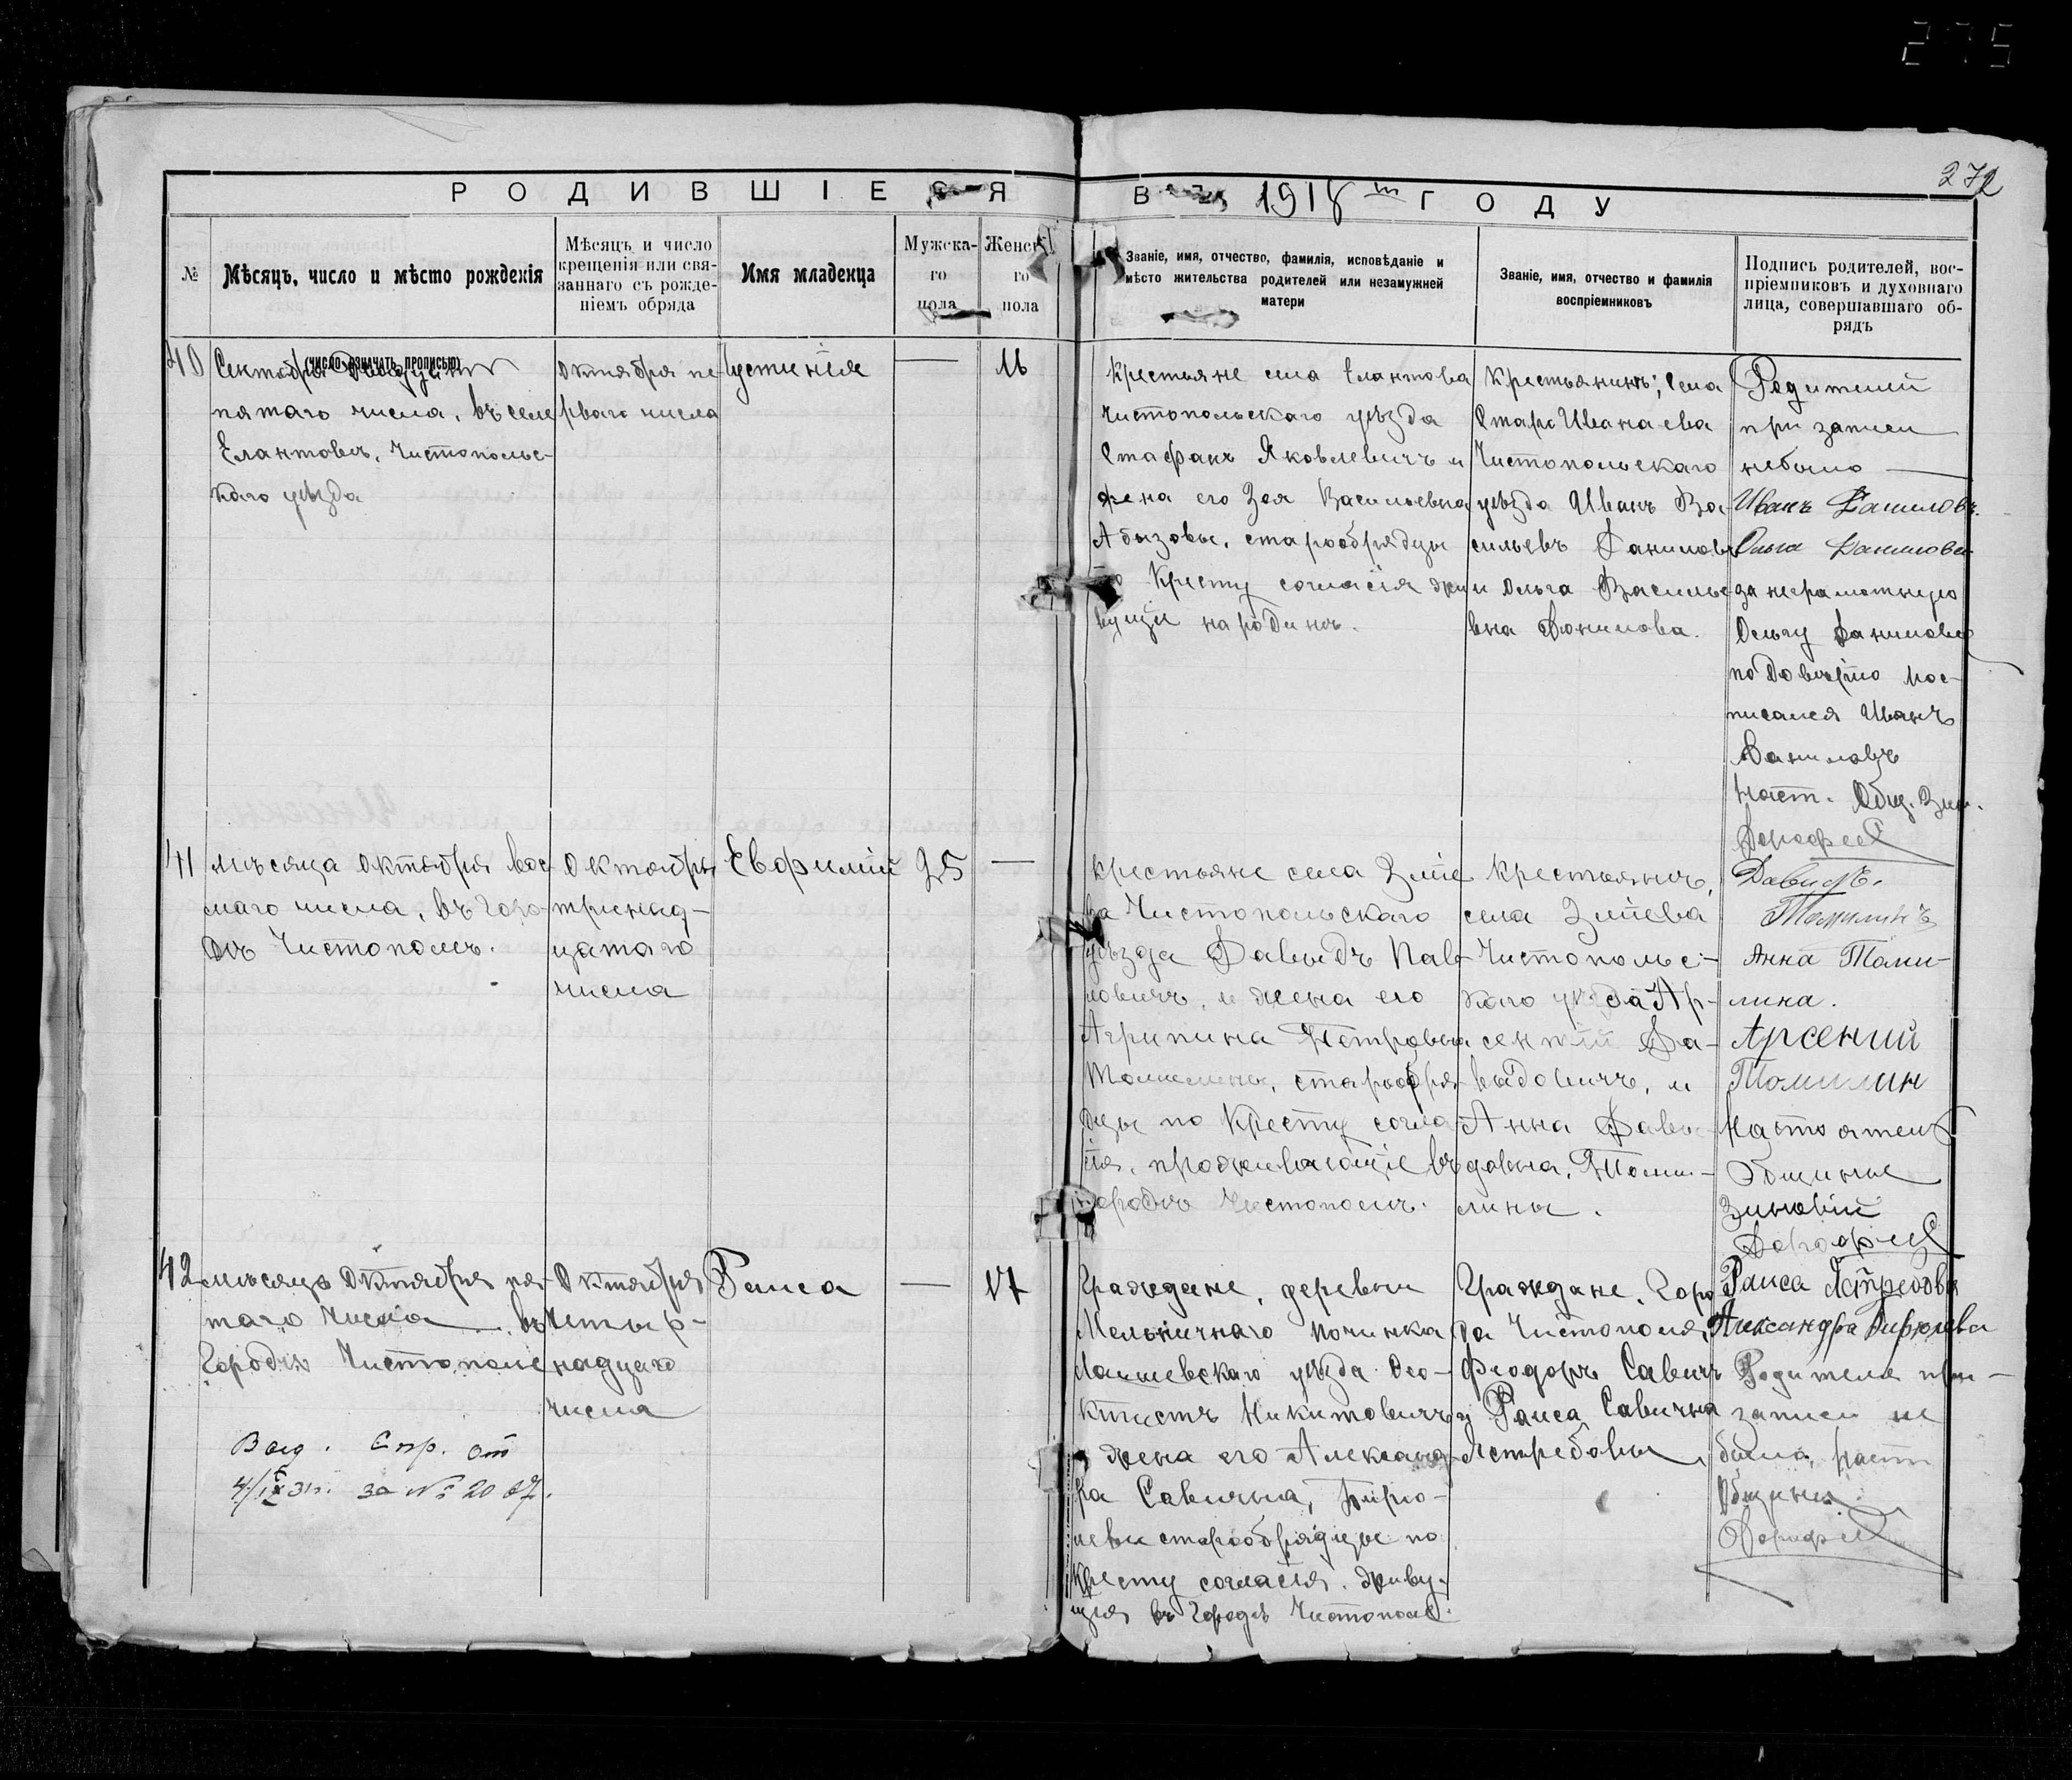 275
272
РОДИВШІЕСЯ В 1918 ГОДУ
№
Мѣсяцъ, число и мѣсто рожденія
(число означать прописью)
Мѣсяцъ и число
крещенія или свя-
заннаго съ рожде-
ніемъ обряда
Имя младенца
Мужска-
го
пола
Женска
го
пола
Званіе, имя, отчество, фамилія, исповѣданіе и
мѣсто жительства родителей или незамужней
матери
Званіе, имя, отчество и фамилія
воспріемниковъ
Подпись родителей, вос-
пріемниковъ и духовнаго
лица, совершавшаго об-
рядъ
40
Сентября
пятаго числа, въ селе
Елантовѣ, Чистопольс-
каго уѣзда
Октября пе-
рваго числа
Іустинія
—
16
Крестьяне села Елантова
Чистопольскаго уѣзда
Стафанъ Яковлевичъ и
жена его Зоя Васильевна
Абызовы, старообрядцы
по Кресту согласія жи
вущіе на родинѣ.
Крестьянинъ, села
Старо Иванаева
Чистопольскаго
уѣзда Иванъ Ва-
сильевъ Даниловъ
и Ольга Василье-
вна Данилова.
Родителей
при записи
небыло
Иванъ Даниловъ.
Ольга Данилова
за неграмотную
Ольгу Данилову
по довѣрію рос-
писался Иванъ
Даниловъ
Наст. Общ. Зин.
Дорофеев
41
мѣсяца Октября вос-
маго числа, въ горо-
дѣ Чистополѣ.
Октября
тринад-
цатаго
числа
Евфимій
25
—
Крестьяне села Зміе
ва Чистопольскаго
уѣзда Давыдъ Пав-
ловичъ, и жена его
Агрипина Петровна
Томилины, старообря-
дцы по Кресту согла
сія, проживающіе въ
городѣ Чистополѣ.
Крестьянинъ,
села Зміева
Чистопольс-
каго уѣзда Ар-
сентій Да-
выдовичъ, и
Анна Давы-
довна, Томи-
лины.
Давыдъ.
Томилинъ
Анна Томи-
лина.
Арсений
Томилин
Настоятель
Общины
Зиновій
Дорофеев
42
мѣсяца Октября пя-
таго числа въ
городѣ Чистополе
Октября
четыр-
надцаго
числа
Раиса
—
17
Граждане, деревни
Мельничнаго Починка
Лаишевскаго уѣзда Фео-
ктистъ Никитовичъ
и жена его Александ-
ра Савична, Бирю-
левы старообрядцы по
Кресту согласія. живу-
щія въ городѣ Чистополѣ.
Граждане, горо
да Чистополя,
Феодоръ Савичъ
и Раиса Савична
Ястребовы
Раиса Ястребова
Александра Бирюлева
Родителя при
записи не
было, Наст
Общины
Дорофеев
Выд. Спр. от
4/IX 31г. за № 20